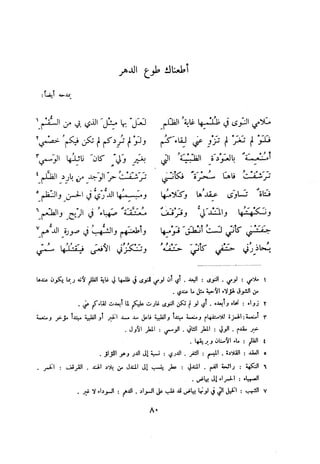 أطعناك طوع الدهر
يمدحه أيضاً:
مَلامي النَّوى في ظُلْمِها غايةُ الظُّلمِ لعَلّ بها مِثْلَ الذي بي من السُّقْمِ ١
فلَوْ لم تَغَرْ لم تَزْوِ عنّي لِقاءَكُمْ ولَوْ لم تُرِدْكُمْ لم تكن فيكمُ خَصْمي ٢
أمُنْعِمَةٌ بالعَوْدَةِ الظَّبيَةُ التي بغَيرِ وَليٍّ كانَ نائِلُهَا الوَسْمي ٣
تَرَشّفْتُ فاهَا سُحْرَةً فكَأنّني تَرَشّفْتُ حرّ الوَجدِ من بارِدِ الظَّلمِ ٤
فَتاةٌ تَساوَى عقدُها وكَلامُها ومَبسِمُها الدُّرّيُّ في الحسنِ والنّظمِ ٥
ونَكْهَتُها والمَنْدَليُّ وقَرْقَفٌ مُعَتَّقَةٌ صَهباءُ في الرّيحِ والطّعمِ ٦
جَفَتْني كأنّي لَستُ أنطَقَ قَوْمِها وأطعَنَهمْ والشُّهبُ في صورةِ الدُّهمِ ٧
يُحاذِرُني حَتْفي كأنّيَ حَتْفُهُ وتَنْكُزُني الأفعَى فيَقتُلُها سُمّي
١ ملامي : لومي . النوى : البعد . أي أن لومي للنوى في ظلمها لي غاية الظلم لأنه ربما يكون عندها
من الشوق لهؤلاء الأحبة مثل ما عندي .
٢ زواه : نحاه وأبعده . أي لو لم تكن النوى غارت عليكم لما أبعدت لقاءكم عني .
٣ أمنعمة: الهمزة للاستفهام ومنعمة مبتدأ والظبية فاعل سد مسد الخبر أو الظبية مبتدأ مؤخر ومنعمة
خبر مقدم . الولي : المطر الثاني . الوسمي : المطر الأول .
٤ الظلم : ماء الأسنان وبريقها .
٥ العقد : القلادة . المبسم : الثغر . الدري : نسبة إلى الدر وهو اللؤلؤ .
٦ النكهة : رائحة الفم . المندلي : عطر ينسب إلى المندل من بلاد الهند . القرقف : الخمر .
الصهباء : الحمراء إلى بياض .
٧ الشهب : الخيل التي في لونها بياض قد غلب على السواد . الدهم : السوداء لا غير .
٨٠